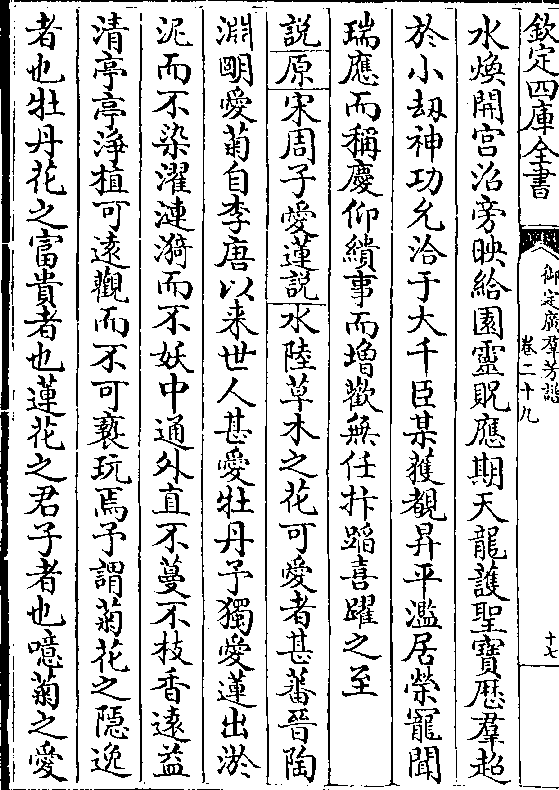 欽定四庫全書
御定廣羣芳譜
卷二十九
十七
水煥開宫沼旁映給園靈貺應期天龍䕶聖寶厯羣超
於小劫神功允洽于大千臣某獲覩昇平濫居榮寵聞
瑞應而稱慶仰繢事而增歡無任抃蹈喜躍之至
説原宋周子愛蓮説水陸草木之花可愛者甚蕃晉陶
淵明愛菊自李唐以来世人甚愛牡丹予獨愛蓮出淤
泥而不染濯漣漪而不妖中通外直不蔓不枝香遠益
清亭亭淨植可遠觀而不可褻玩焉予謂菊花之隠逸
者也牡丹花之富貴者也蓮花之君子者也噫菊之愛